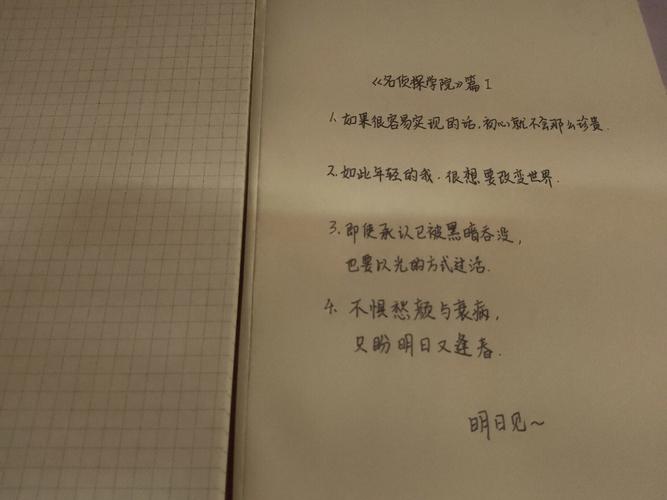 《名侦探学院》篇 I
1. 如果很容易实现的话,初心就不会那么珍贵.
2. 如此年轻的我.很想要改变世界.
3. 即使承认已被黑暗吞没,
也要以光的方式过活.
4. 不惧愁颜与衰病,
只盼明日又逢春.
明日见~